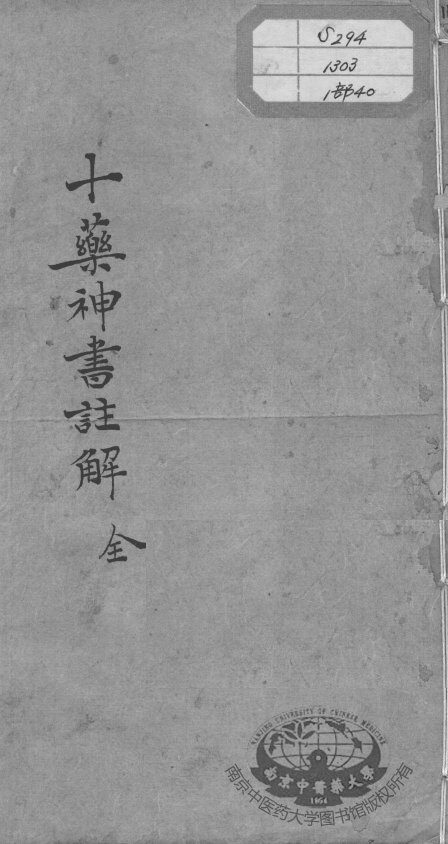 S294
1303
1部40
十藥神書註解
全
NANJING UNIVERSITY OF CHINESE MEDICINE
南京中醫藥大學
1954
南京中医药大学图书馆版权所有